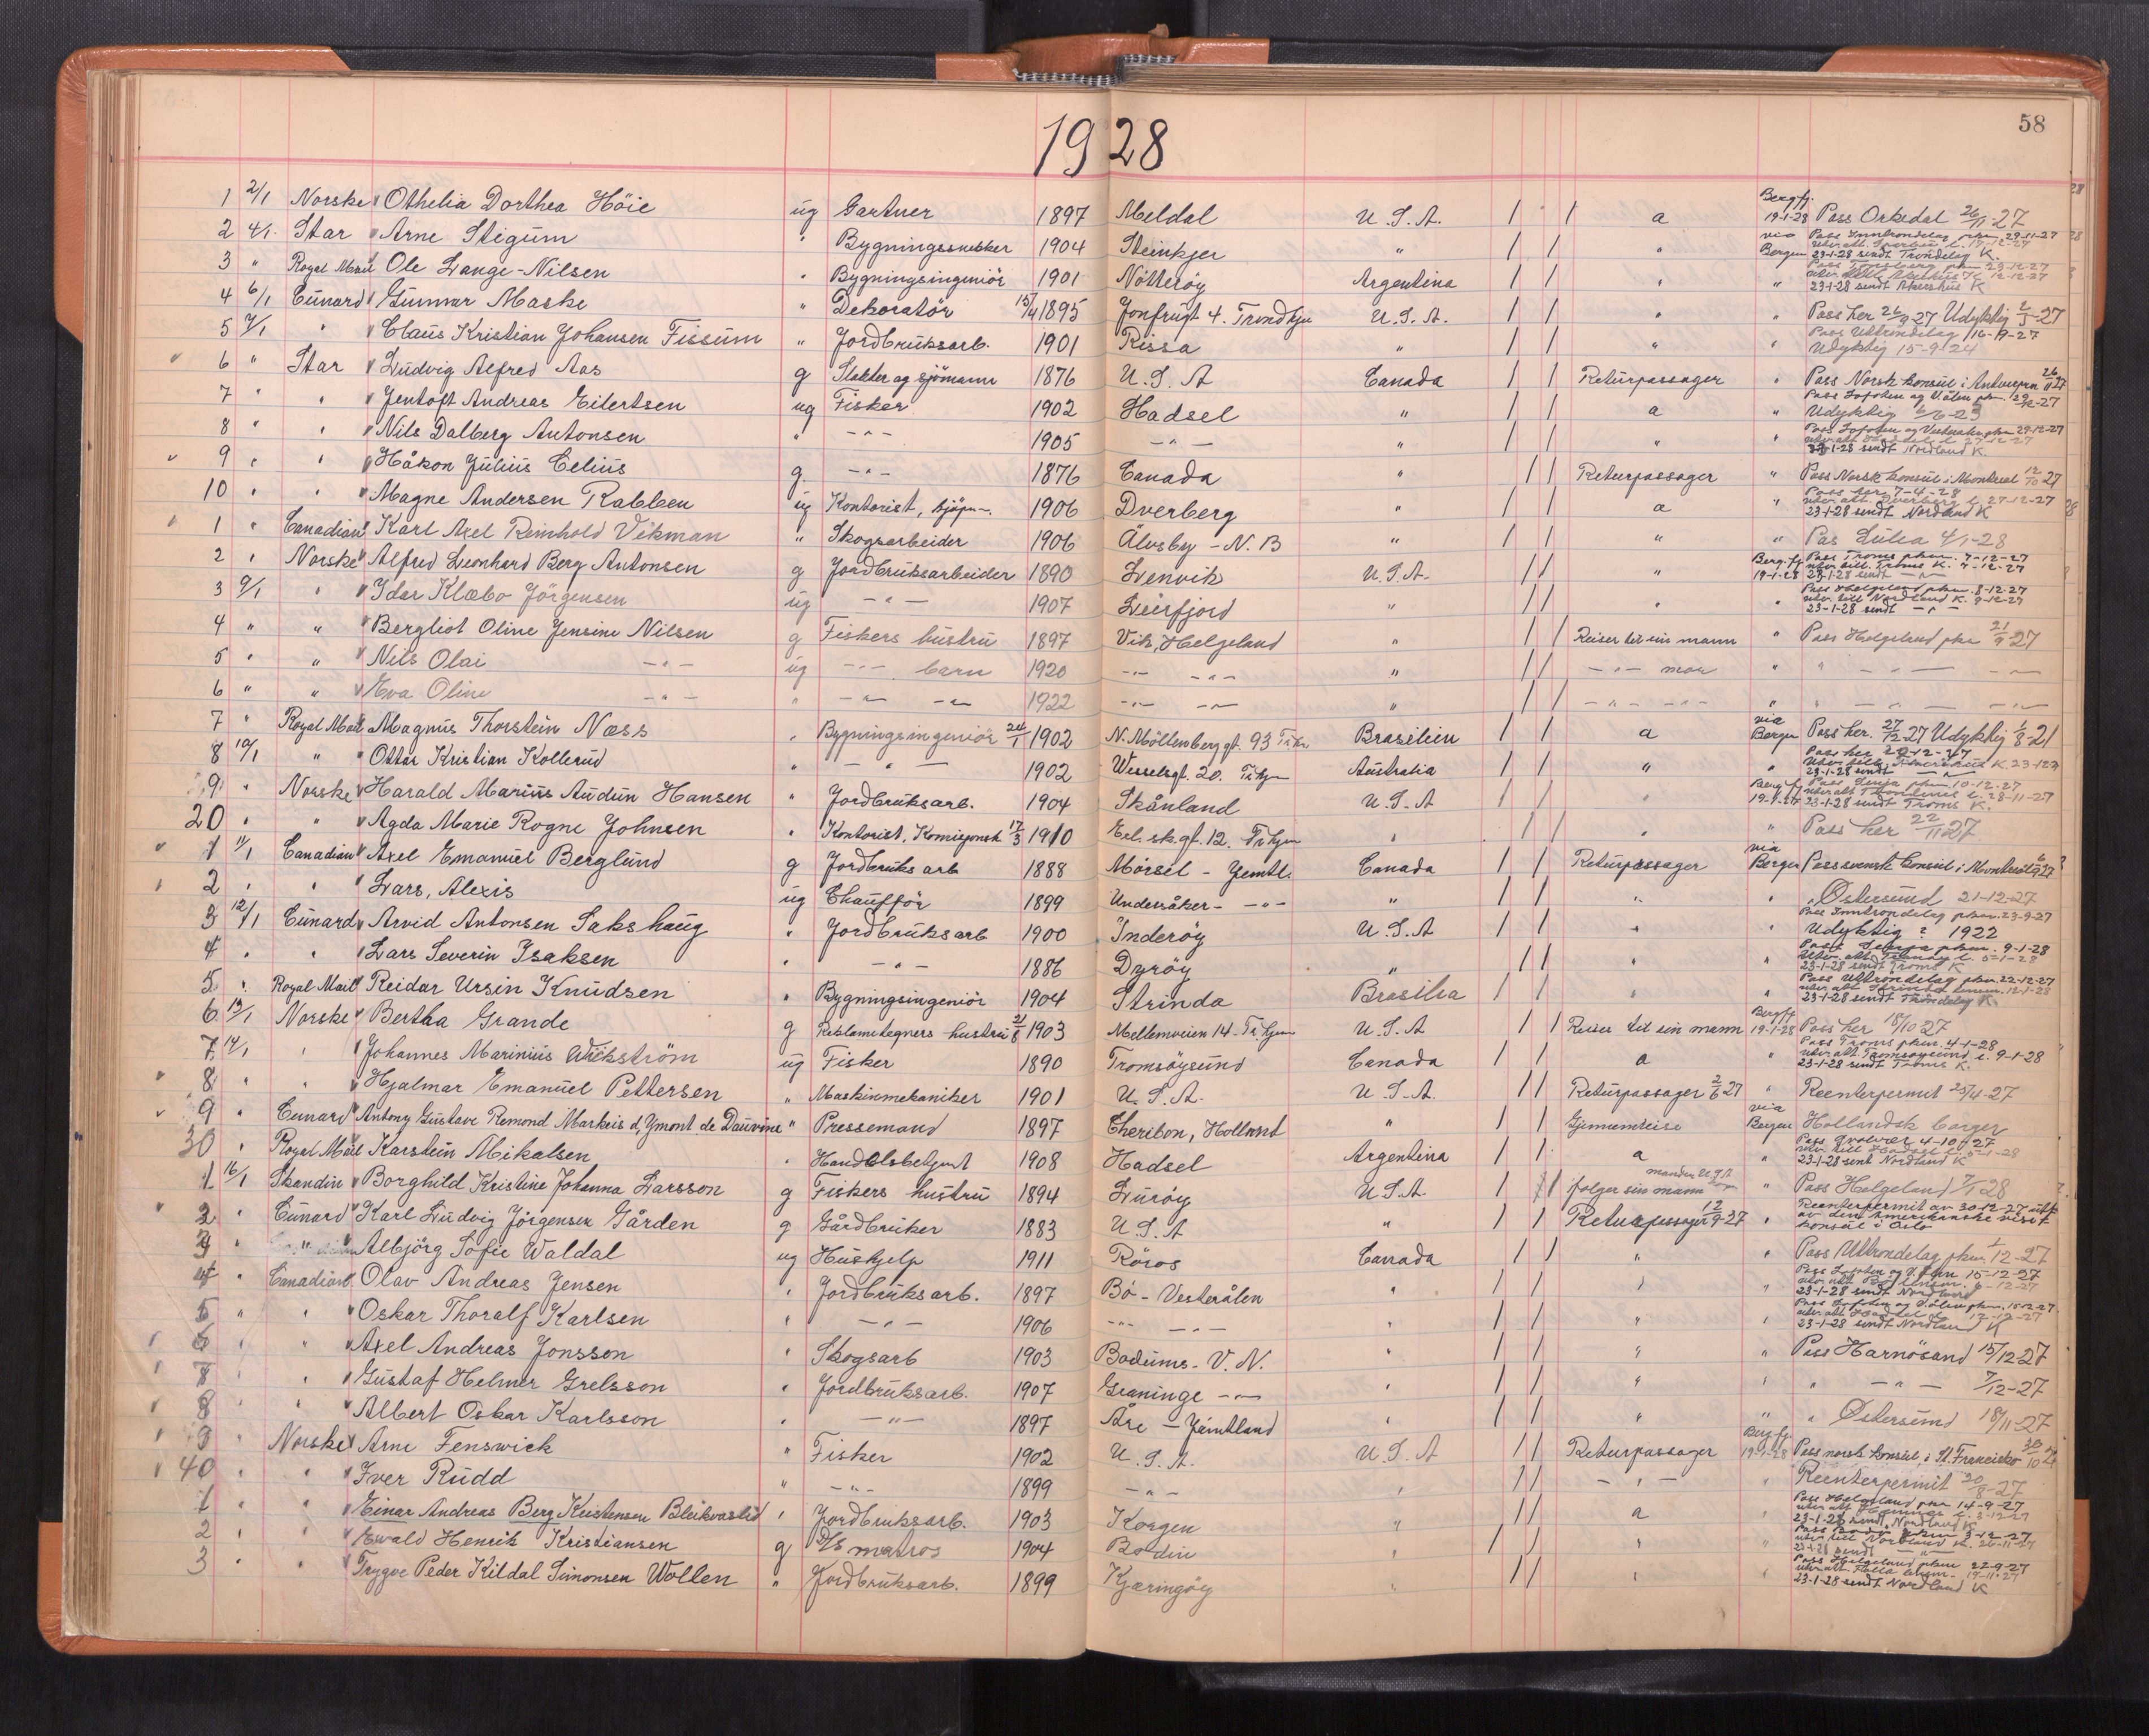 58
1928
1 2/1 Norske Othelia Dorthea Höie ug Gartner 1897 Meldal U.S.A. / / a Bergfj. 19-1-28 Pass Orkedal 26/11-27
2 4/1 Star Arne Stigum " Bygningssnekker 1904 Steinkjer " / / " via Bergen Pass Inntrondelag pkm. 29-11-27 23-1-28 sendt Trondelag K.
3 " Royal Mail Ole Lange-Nilsen " Bygningsingeniör 1901 Nötteröy Argentina / / " " 23-1-28 sendt Akershus K
4 6/1 Cunard Gunnar Maske " Dekoratör 15/4 1895 Jonfrugt 4. Trondhjm U.S.A. / / " " Pass her 26/9 27 Udyktig 2/5-27
5 7/1 " Claus Kristian Johansen Fissum " Jordbruksarb. 1901 Rissa " / / " " Pass Uttrondelag 16-9-27 Udyktig 15-9-24
6 " Star Ludvig Alfred Aas g Slakter og sjömann 1876 U.S.A Canada / / Returpassager " Pass Norsk konsul i Antwerpen 26/11 27
7 " " Jentoft Andreas Eilertsen ug Fisker 1902 Hadsel " / / a " Udyktig 6/6-23
8 " " Nils Dalberg Antonsen " -"- 1905 -"- " / / " " 23-1-28 sendt Nordland K.
9 " " Håkon Julius Celius g -"- 1876 Canada " / / Returpassager " Pass Norsk konsul i Montreal 12/10 27
10 " " Magne Andersen Rabben ug Kontorist, 1906 Dverberg " / / a " Pass her 7-4-28 27-12-27 23-1-28 sendt Nordland K
1 " Canadian Karl Axel Reinhold Vikman " Skogsarbeider 1906 Älvsby - N. B " / / " " Pas Luleå 4/1-28
2 " Norske Alfred Leonhard Berg Antonsen g Jordbruksarbeider 1890 Lenvik U.S.A. / / " Berg.fj 19-1-28 Pass Troms pkm. 7-12-27 23-1-28 sendt -"-
3 9/1 " Idar Klæbo Jörgensen ug -"- 1907 Leirfjord " / / " " Pass Helgeland pkm. 8-12-27 utv. till Nordland K. 9-12-27 23-1-28 sendt -"-
4 " " Bergliot Oline Jensine Nilsen g Fiskers hustru 1897 Vik, Helgeland " / / Reiser til sin mann " Pass Helgeland pkm 21/9 27
5 " " Nils Olai -"- ug -"- barn 1920 -"- -"- " / / -"- mor " " -"- -"-
6 " " Eva Oline -"- " -"- -"- 1922 -"- -"- " / / -"- -"- " " -"- -"-
7 " Royal Mail Magnus Thorstein Næss " Bygningsingeniör 24/1 1902 N. Möllenberggt. 93 Tr.hjm Brasilien / / a via Bergen Pass her. 27/12-27 Udyktig 1/8-21
8 10/1 " Ottar Kristian Kollerud " -"- 1902 Wesselsgt. 20. Tr.hjm Australia / / " " 23-1-28 sendt -"-
9 " Norske Harald Marius Audun Hansen " Jordbruksarb. 1904 Skånland U.S.A / / " Berg.fj 19-1-28 Pass Senja pkm 10-12-27 28-11-27 23-1-28 sendt Troms K.
20 " " Agda Marie Rogne Johnsen " Kontorist, Komisjonsk 17/3 1910 Erl. sk.gt. 12. Tr.hjm " / / " " Pass her 22/11 27
1 11/1 Canadian Axel Emanuel Berglund g Jordbruksarb 1888 Mörsel - Jemtl. Canada / / Returpassager via Bergen Pass svensk konsul i Montreal
2 " " Lars, Alexis ug Chaufför 1899 Undersåker - -"- " / / " " " Østersund 21-12-27
3 12/1 Cunard Arvid Antonsen Sakshaug " Jordbruksarb 1900 Inderöy U.S.A / / " " Pass Inntrondelag pkm. 23-9-27 Udyktig ? 1922
4 " " Lars Severin Isaksen " -"- 1886 Dyröy " / / " " Pass Senja pkm. 9-1-28 23-1-28 sendt Troms K
5 " Royal Mail Reidar Ursin Knudsen " Bygningsingeniör 1904 Strinda Brasilia / / " " Pass Uttrondelag pkm. 22-12-27 23-1-28 sendt Trondelag K.
6 13/1 Norske Bertha Grande g Reklametegners hustru 21/8 1903 Mellemveien 14 - Tr.hjm U.S.A / / Reiser til sin mann Bergfj 19-1-28 Pass her 18/10 27
7 14/1 " Johannes Marinius Wickström ug Fisker 1890 Tromsöysund Canada / / a " Pass Troms pkm. 4-1-28 utv. att. Tromsoysund l. 9-1-28 23-1-28 sendt Troms K.
8 " " Hjalmar Emanuel Pettersen " Maskinmekaniker 1901 U.S.A. U.S.A. / / Returpassager 2/6 27 " Reenterpermit 25/4-27
9 " Cunard Antony Gustave Remond Markeis d, Ymont de Dauvine " Pressemand 1897 Cheribon, Holland " / / Gjennemreise via Bergen Hollandsk borger
30 " Royal Mail Karstein Mikalsen " Handelsbetjent 1908 Hadsel Argentina / / a " Pass Svolvær 4-10-27 23-1-28 sent Nordland K
1 16/1 Skandin Borghild Kristine Johanna Larsson g Fiskers hustru 1894 Luröy U.S.A. / / følger sin mann " Pass Helgeland 7/1 28
2 " Cunard Karl Ludvig Jörgensen Gården g Gårdbruker 1883 U.S.A " / / Returpassager 12/9-27 " Reenterpermit av 30-12-27 utst av den Amerikanske visit konsul i Oslo
3 " " Albjörg Sofie Waldal ug Huskjelp 1911 Röros Canada / / " " Pass Uttrondelag pkm. 1/12-27
4 " Canadian Olav Andreas Jensen " Jordbruksarb. 1897 Bö - Vesterålen " / / " " 15-12-27 23-1-28 sendt Nordland
5 " " Oskar Thoralf Karlsen " -"- 1906 -"- -"- " / / " " 23-1-28 sendt Nordland K
6 " " Axel Andreas Jonsson " Skogsarb 1903 Bodums - V. N. " / / " " Pass Härnösand 15/12 27
7 " " Gustaf Helmer Grelsson " Jordbruksarb. 1907 Graninge -"- " / / " " " -"- 7/12-27
8 " " Albert Oskar Karlsson " -"- 1897 Åre - Jämtland " / / " " " Østersund 18/11-27
9 " Norske Arne Fenswick " Fisker 1902 U.S.A. U.S.A / / Returpassager Berg.fj 19-1-28 Pass norsk konsul i St. Francisko
40 " " Iver Rudd " -"- 1899 -"- " / / -"- " Reenterpermit 20/8-27
1 " " Einar Andreas Berg Kristensen Bleikvaslid " Jordbruksarb. 1903 Korgen " / / a " Pass Helgeland pkm 14-9-27 23-1-28 sendt Nordland K
2 " " Ewald Henrik Kristiansen g D/S matros 1904 Bodin " / / " " 23-1-28 sendt -"-
3 " " Trygve Peder Kildal Simonsen Wollen " Jordbruksarb. 1899 Kjæringöy " / / " " Pass Helgeland pkm 22-9-27 23-1-28 sendt Nordland K